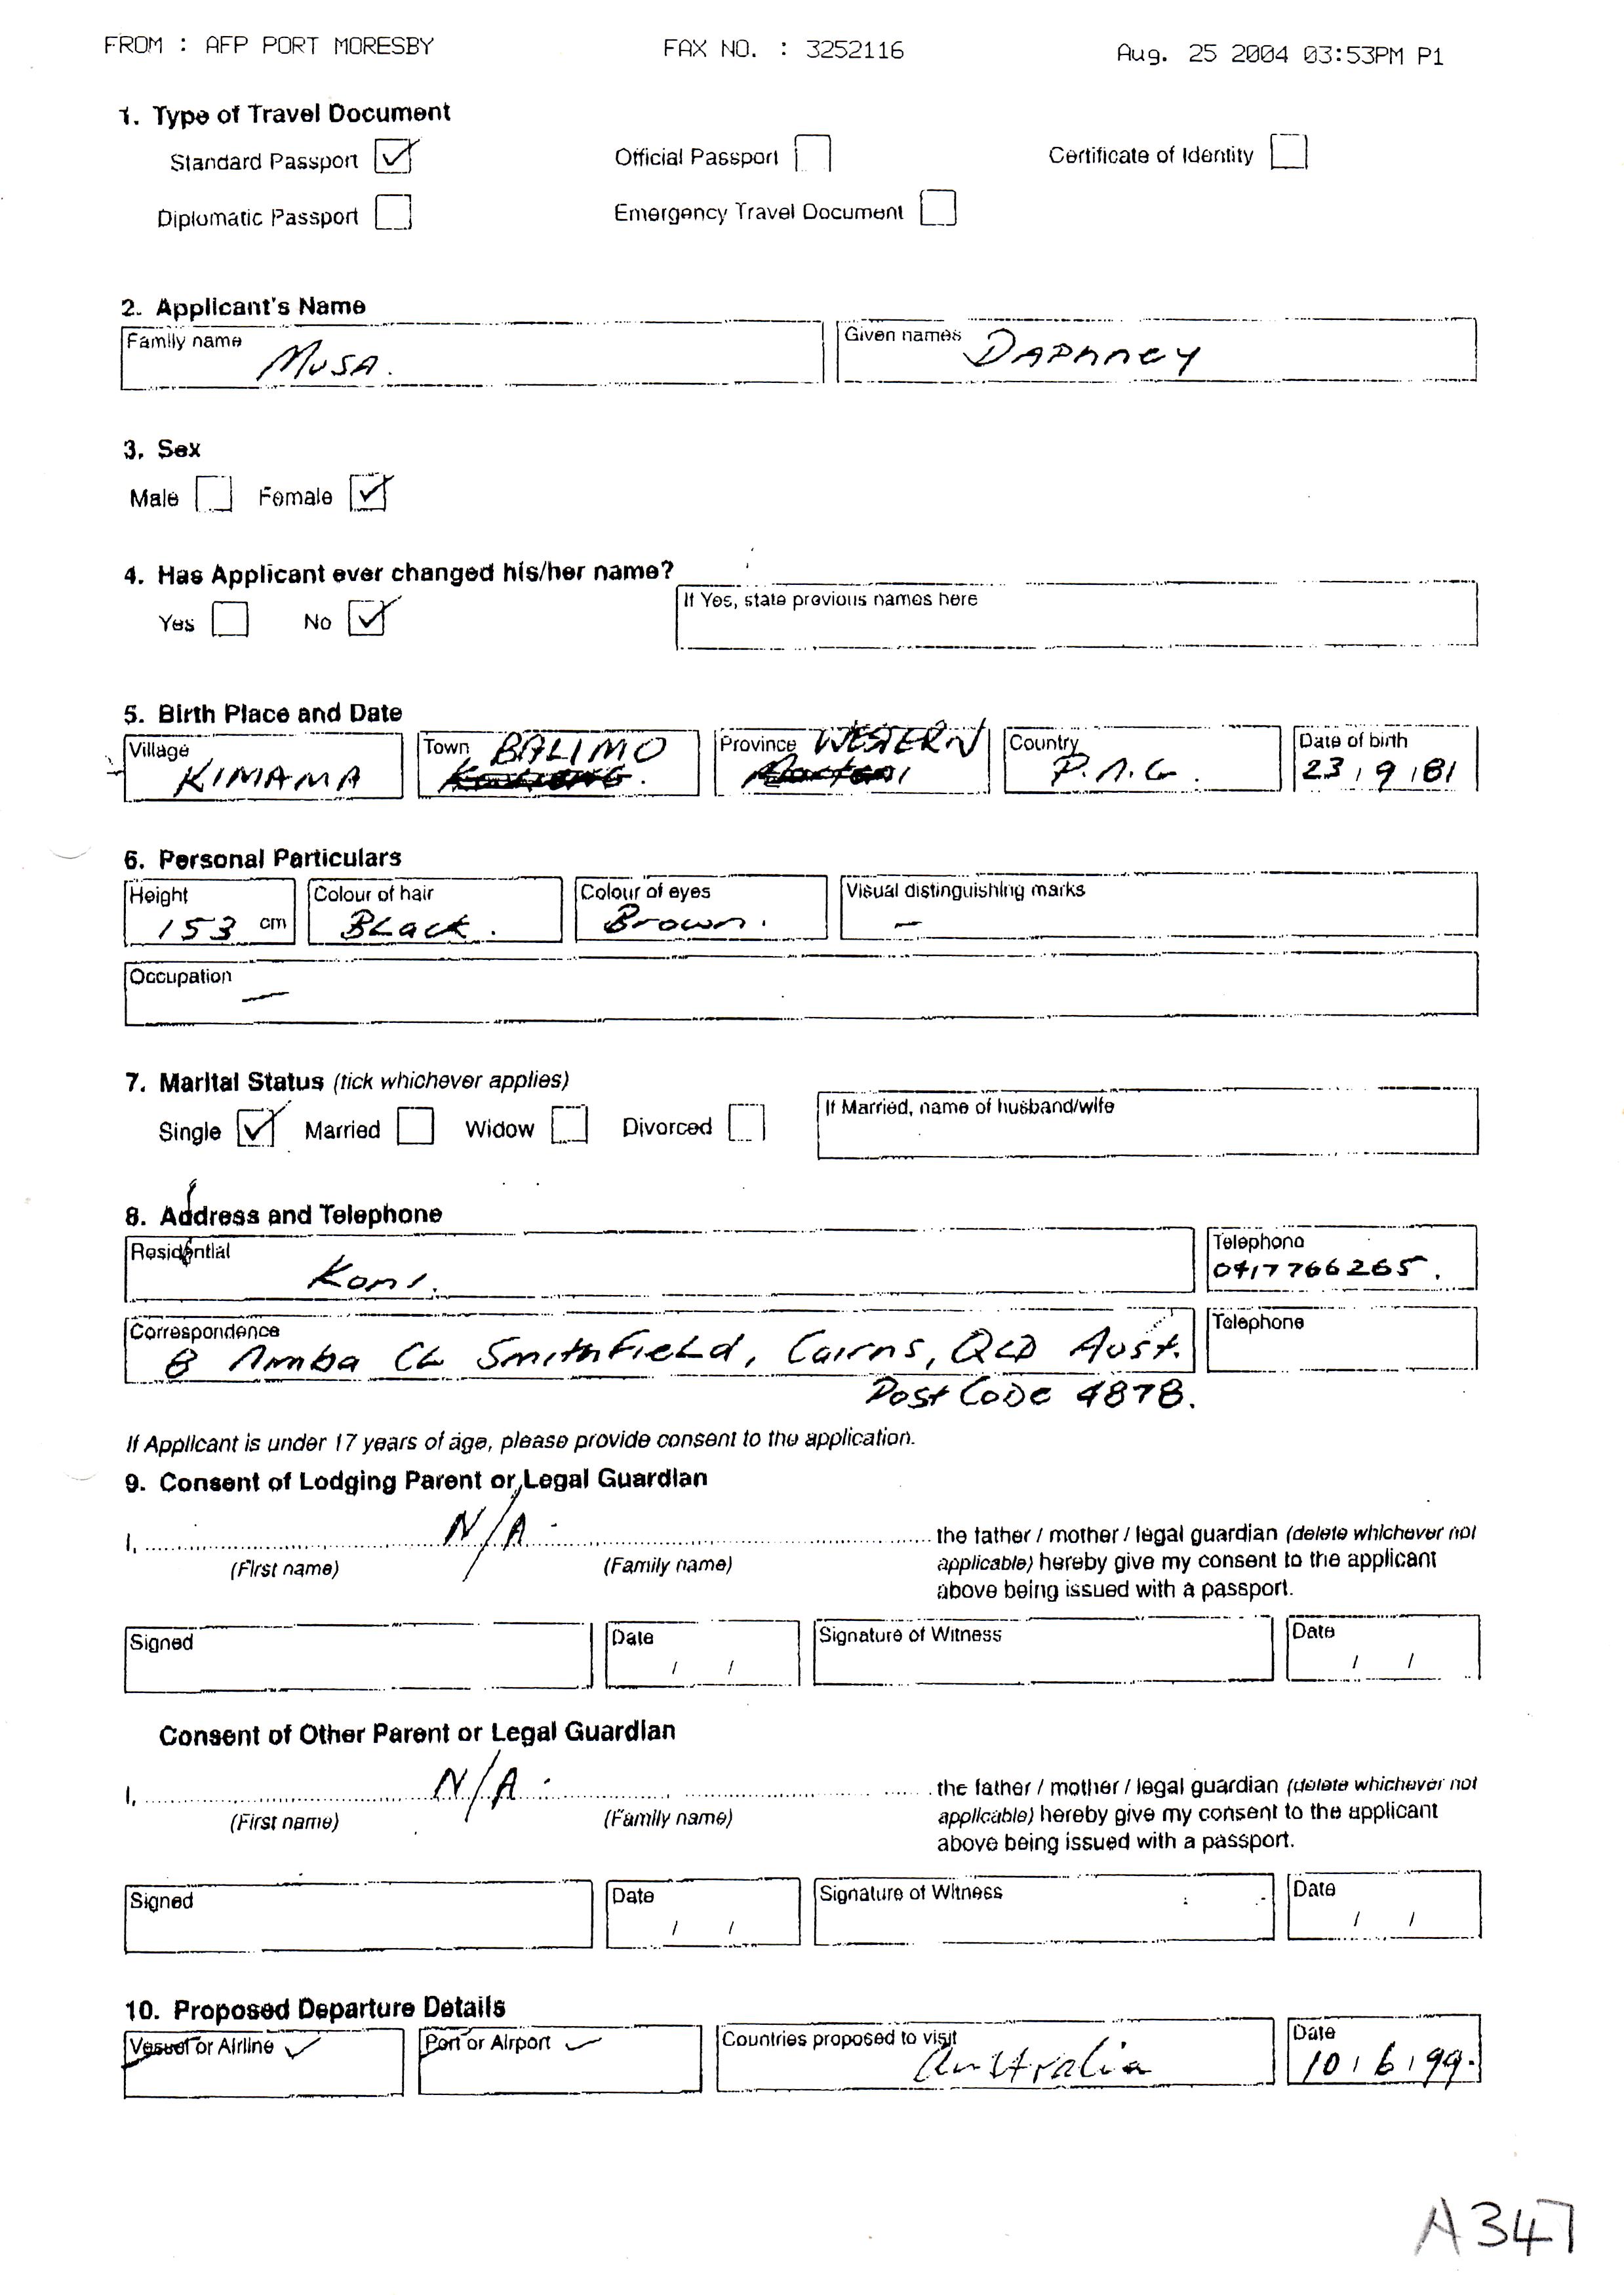 FROM : AFP PORT MORESBY FAX NO. : 3252116 Aug. 25 2004 03:53PM P1
1. Type of Travel Document
Standard Passport Official Passport Certificate of Identity
Diplomatic Passport Emergency Travel Document
2. Applicant's Name
Family name MUSA. Given names DAPHNEY
3. Sex
Male Female
4. Has Applicant ever changed his/her name?
Yes No If Yes, state previous names here
5. Birth Place and Date
Village Town BALIMO Province WESTERN Country Date of birth
KIMAMA P.N.G. 23/9/81
6. Personal Particulars
Height Colour of hair Colour of eyes Visual distinguishing marks
153 cm Black. Brown. –
Occupation —
7. Marital Status (tick whichever applies)
Single Married Widow Divorced If Married, name of husband/wife
8. Address and Telephone
Residential Telephone
0417766265.
Correspondence Telephone
8 Cl Smithfield, Cairns, QLD Aust.
Post Code 4878.
If Applicant is under 17 years of age, please provide consent to the application.
9. Consent of Lodging Parent or Legal Guardian
I, N/A the father / mother / legal guardian (delete whichever not
(First name) (Family name) applicable) hereby give my consent to the applicant
above being issued with a passport.
Signed Date / / Signature of Witness Date / /
Consent of Other Parent or Legal Guardian
I, N/A the father / mother / legal guardian (delete whichever not
(First name) (Family name) applicable) hereby give my consent to the applicant
above being issued with a passport.
Signed Date / / Signature of Witness Date / /
10. Proposed Departure Details
Vessel or Airline Port or Airport Countries proposed to visit Date
Australia 10/6/99.
A347